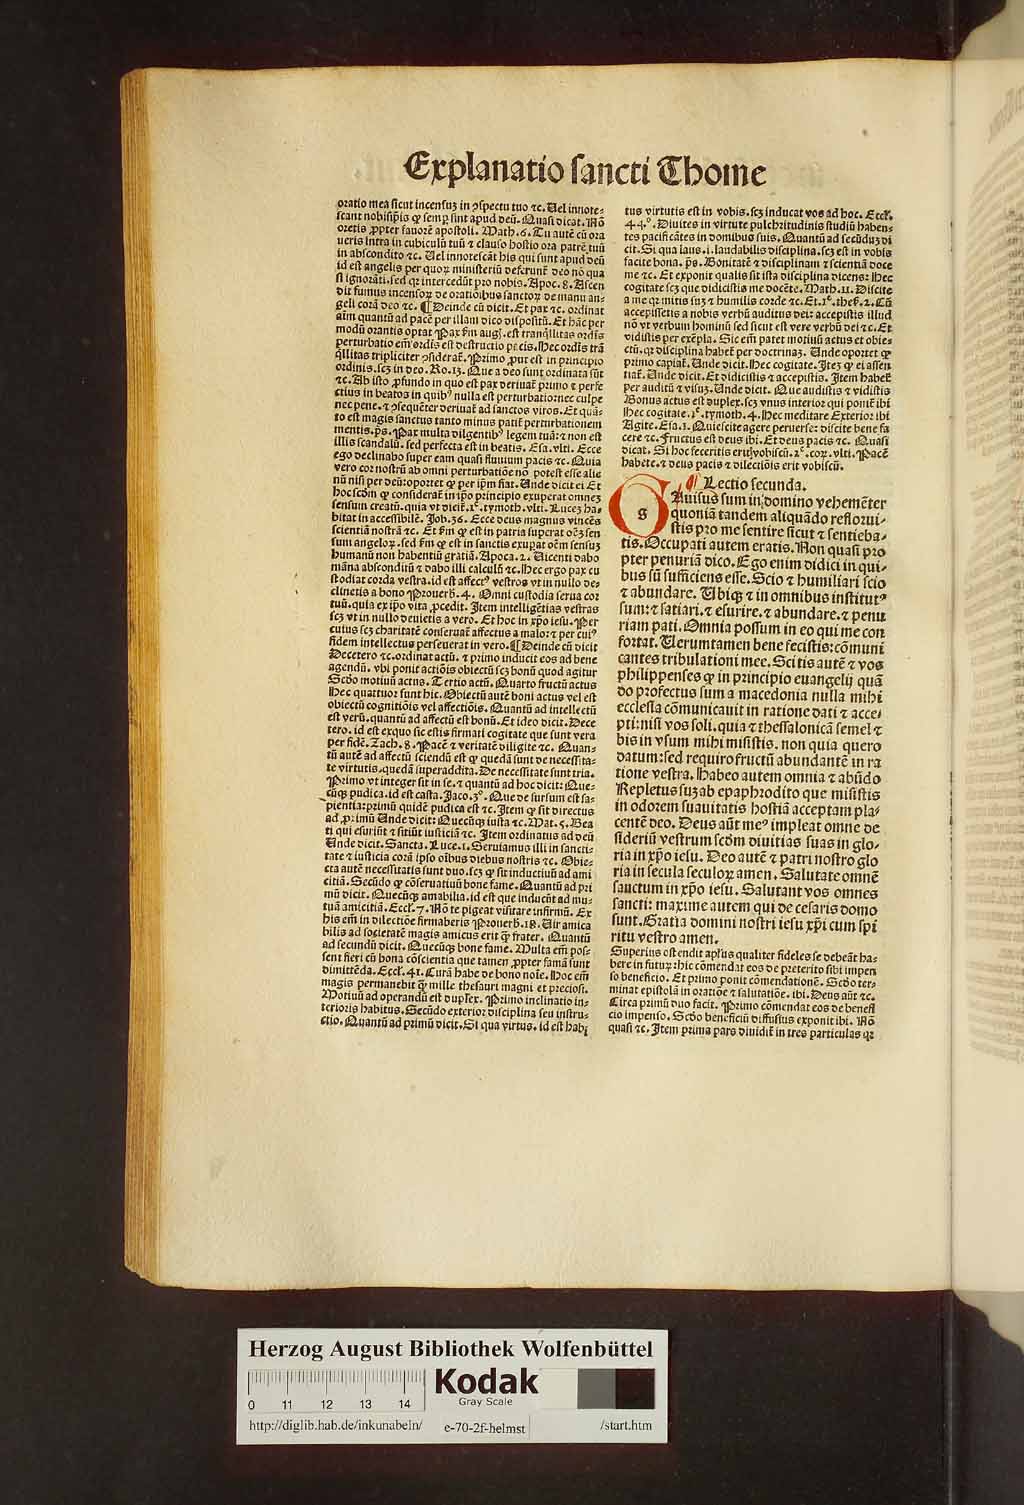 Explanatio sancti Thome
oratio mea sicut incensuʒ in ꝯspectu tuo ⁊c. Uel innote-
scant nobisip̄is ꝙ semꝑ sint apud deū. Quasi dicat. Nō
oretis ꝓpter fauorē apostoli. Math. 6. Tu autē cū ora
ueris intra in cubiculū tuū ⁊ clauso hostio ora patrē tuū
in abscondito ⁊c. Uel innotescāt his qui sunt apud deū
id est angelis per quoꝝ ministeriū deferunt̄ deo nō qua
si ignorāti. sed qꝛ intercedūt pro nobis. Apoc. 8. Ascen
dit fumus incensoꝝ de oratiōibus sanctoꝝ de manu an-
geli corā deo ⁊c. ¶ Deinde cū dicit. Et pax ⁊c. ordinat
aīm quantū ad pacē per illam dico dispositū. Et hāc per
modū orantis optat Pax ẜm aug. est tranq̄llitas ordīs
perturbatio em̄ ordīs est destructio pacis. Hec ordīs trā
q̄llitas tripliciter ꝯsiderat̄. Primo ꝓut est in principio
ordinis. scʒ in deo. Ro. 13. Que a deo sunt ordinata sūt
⁊c. Ab isto ꝓfundo in quo est pax deriuat̄ primo ⁊ perfe
ctius in beatos in quibꝰ nulla est perturbatio: nec culpe
nec pene. ⁊ ꝯsequēter deriuat̄ ad sanctos viros. Et quā-
to est magis sanctus tanto minus patit̄ perturbationem
mentis. pš. Pax multa diligentibꝰ legem tuā: ⁊ non est
illis scandalū. sed perfecta est in beatis. Esa. vlti. Ecce
ego declinabo super eam quasi fluuium pacis ⁊c. Quia
vero cor nostrū ab omni perturbatiōe nō potest esse alie
nū nisi per deū: oportet ꝙ per ip̄m fiat. Unde dicit ei Et
hoc scōm ꝙ considerat̄ in ip̄o principio exuperat omneʒ
sensum creatū. quia vt dicit̄. 1ᵉ. tymoth. vlti. Luceʒ ha-
bitat in accessibilē. Job. 36. Ecce deus magnus vincēs
scientiā nostrā ⁊c. Et ẜm ꝙ est in patria superat oēʒ sen
sum angeloꝝ. sed ẜm ꝙ est in sanctis exupat oēm sensuʒ
humanū non habentiū gratiā. Apoca. 2. Uicenti dabo
māna absconditū ⁊ dabo illi calculū ⁊c. Hec ergo pax cu
stodiat corda vestra. id est affectꝰ vestros vt in nullo de-
clinetis a bono Prouerb. 4. Omni custodia serua cor
tuū. quia ex ip̄o vita ꝓcedit. Item intelligētias vestras
scʒ vt in nullo deuietis a vero. Et hoc in xp̄o iesu. Per
cuius scʒ charitatē conseruat̄ affectus a malo: ⁊ per cuiꝰ
fidem intellectus perseuerat in vero. ¶ Deinde cū dicit
Decetero ⁊c. ordinat actū. ⁊ primo inducit eos ad bene
agendū. vbi ponit actiōis obiectū scʒ bonū quod agitur
Scd̄o motiuū actus. Tertio actū. Quarto fructū actus
Hec quattuor sunt hic. Obiectū autē boni actus vel est
obiectū cognitiōis vel affectiōis. Quantū ad intellectū
est verū. quantū ad affectū est bonū. Et ideo dicit. Dece
tero. id est exquo sic estis firmati cogitate que sunt vera
per fidē. Zach. 8. Pacē ⁊ veritatē diligite ⁊c. Quan-
tū autē ad affectū sciendū est ꝙ quedā sunt de necessita-
te virtutis. quedā superaddita. De necessitate sunt tria.
Primo vt integer sit in se. ⁊ quantū ad hoc dicit: Que-
cūqꝫ pudica. id est casta. Jaco. 3º. Que de sursum est sa-
pientia: primū quidē pudica est ⁊c. Item ꝙ sit directus
ad ꝓximū Unde dicit: Quecūqꝫ iusta ⁊c. Mat. 5. Bea
ti qui esuriūt ⁊ sitiūt iusticiā ⁊c. Item ordinatus ad deū
Unde dicit. Sancta. Luce. 1. Seruiamus illi in sancti-
tate ⁊ iusticia corā ipso oībus diebus nostris ⁊c. Obie-
cta autē necessitatis sunt duo. scʒ ꝙ sit inductiuū ad ami
citiā. Secūdo ꝙ cōseruatiuū bone fame. Quantū ad pri
mū dicit. Quecūqꝫ amabilia. id est que inducūt ad mu-
tuā amicitiā. Eccl̄. 7. Nō te pigeat visitare infirmū. Ex
his em̄ in dilectiōe firmaberis Prouerb. 18. Uir amica
bilis ad societatē magis amicus erit ꝙ̄ frater. Quantū
ad secundū dicit. Quecūqꝫ bone fame. Multa em̄ pos-
sent fieri cū bona cōscientia que tamen ꝓpter famā sunt
dimittēda. Eccl̄. 41. Curā habe de bono noīe. Hoc em̄
magis permanebit ꝙ̄ mille thesauri magni et preciosi.
Motiuū ad operandū est duplex. Primo inclinatio in-
terioris habitus. Secūdo exterior disciplina seu instru-
ctio. Quantū ad primū dicit. Si qua virtus. id est habi
tus virtutis est in vobis. scʒ inducat vos ad hoc. Eccl̄.
44º. Diuites in virtute pulchritudinis studiū haben-
tes pacificātes in domibus suis. Quantū ad secūduʒ di
cit. Si qua laus. i. laudabilis disciplina. scʒ est in vobis
facite bona. pš. Bonitatē ⁊ disciplinam ⁊ scientiā doce
me ⁊c. Et exponit qualis sit ista disciplina dicens: Hec
cogitate scʒ que didicistis me docēte. Math. 11. Discite
a me qꝛ mitis suʒ ⁊ humilis corde ⁊c. Et. 1ᵉ. theẜ. 2. Cū
accepissetis a nobis verbū auditus dei: accepistis illud
nō vt verbum hominū sed sicut est vere verbū dei ⁊c. Et
vidistis per exēpla. Sic em̄ patet motiuū actus et obie-
ctū. qꝛ disciplina habet̄ per doctrinaʒ. Unde oportet ꝙ
primo capiat̄. Unde dicit. Hec cogitate. Iteʒ ꝙ ei assen
tiat̄. Unde dicit. Et didicistis ⁊ accepistis. Item habet̄
per auditū ⁊ visuʒ. Unde dicit. Que audistis ⁊ vidistis
Bonus actus est duplex. scʒ vnus interior qui ponit̄ ibi
Hec cogitate. 1ᵉ. tymoth. 4. Hec meditare Exterior ibi
Agite. Esa. 1. Quiescite agere peruerse: discite bene fa
cere ⁊c. Fructus est deus ibi. Et deus pacis ⁊c. Quasi
dicat. Si hoc feceritis erit vobiscū. 2ᵉ. coꝝ. vlti. Pacē
habete. ⁊ deus pacis ⁊ dilectiōis erit vobiscū.
¶ Lectio secunda.
g Auisus sum in domino vehemēter
quoniā tandem aliquādo reflorui-
stis pro me sentire sicut ⁊ sentieba-
tis. Occupati autem eratis. Non quasi pro
pter penuriā dico. Ego enim didici in qui-
bus sū sufficiens esse. Scio ⁊ humiliari scio
⁊ abundare. Ubiqꝫ ⁊ in omnibus institutꝰ
sum: ⁊ satiari. ⁊ esurire. ⁊ abundare. ⁊ penu
riam pati. Omnia possum in eo qui me con
fortat. Uerumtamen bene fecistis: cōmuni
cantes tribulationi mee. Scitis autē ⁊ vos
philippenses ꝙ in principio euangelij quā
do profectus sum a macedonia nulla mihi
ecclesia cōmunicauit in ratione dati ⁊ acce-
pti: nisi vos soli. quia ⁊ thessalonicā semel ⁊
bis in vsum mihi misistis. non quia quero
datum: sed requiro fructū abundantē in ra
tione vestra. Habeo autem omnia ⁊ abūdo
Repletus suʒ ab epaphrodito que misistis
in odorem suauitatis hostiā acceptam pla-
centē deo. Deus aūt meꝰ impleat omne de
sideriū vestrum scōm diuitias suas in glo-
ria in xp̄o iesu. Deo autē ⁊ patri nostro glo
ria in secula seculoꝝ amen. Salutate omnē
sanctum in xp̄o iesu. Salutant vos omnes
sancti: maxime autem qui de cesaris domo
sunt. Gratia domini nostri iesu xp̄i cum spi
ritu vestro amen.
Superius ostendit apl̄us qualiter fideles se debeāt ha-
bere in futuꝝ: hic cōmendat eos de preterito sibi impen
so beneficio. Et primo ponit cōmendationē. Scd̄o ter-
minat epistolā in oratiōe ⁊ salutatiōe. ibi. Deus aūt ⁊c.
Circa primū duo facit. Primo cōmendat eos de benefi
cio impenso. Scd̄o beneficiū diffusius exponit ibi. Nō
quasi ⁊c. Item prima pars diuidit̄ in tres particulas qꝛ
Herzog August Bibliothek Wolfenbüttel
Kodak
Gray Scale
0 11 12 13 14
http://diglib.hab.de/inkunabeln/ e-70-2f-helmst /start.htm